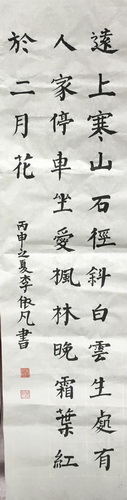 遠上寒山石徑斜白雲生處有
人家停車坐愛楓林晚霜葉紅
於二月花
丙申之夏李依凡書